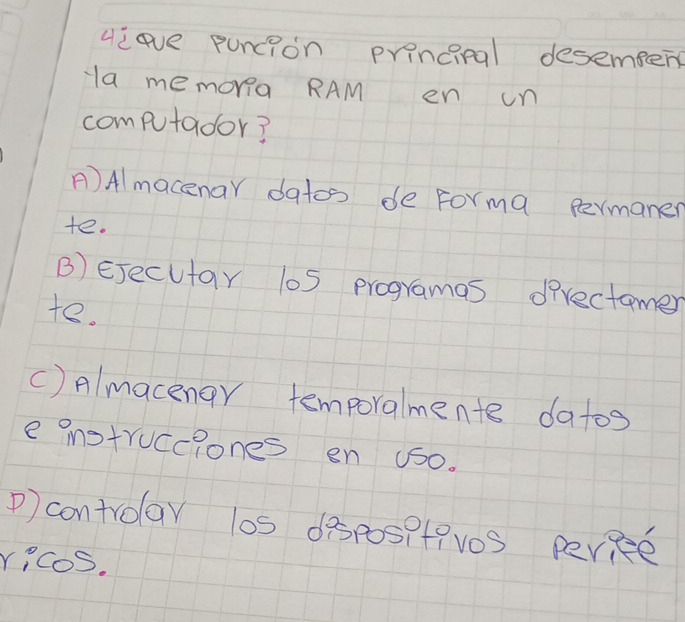 4¿Que función principal desempeñ
la memoria RAM en un
computador?
A) Almacenar datos de Forma permanen
te.
B) Ejecutar los programas directamen
te.
C) Almacenar temporalmente datos
e instrucciones en uso.
D) controlar los dispositivos perifé
ricos.